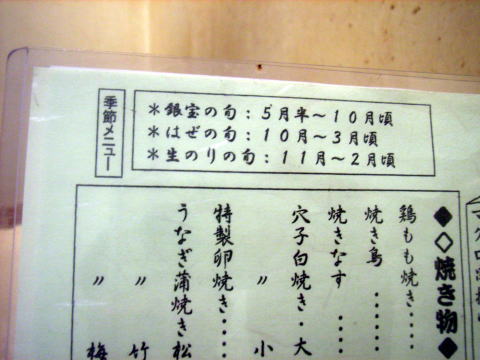 季節メニュー
＊銀宝の旬：５月半～１０月頃
＊はぜの旬：１０月～３月頃
＊生のりの旬：１１月～２月頃
◆◇焼き物◆
鶏もも焼き・・・
焼き鳥・・・・
焼きなす・・・
穴子白焼き・大
〃 小
特製卵焼き・・・
うなぎ蒲焼き松
〃 竹
〃 梅